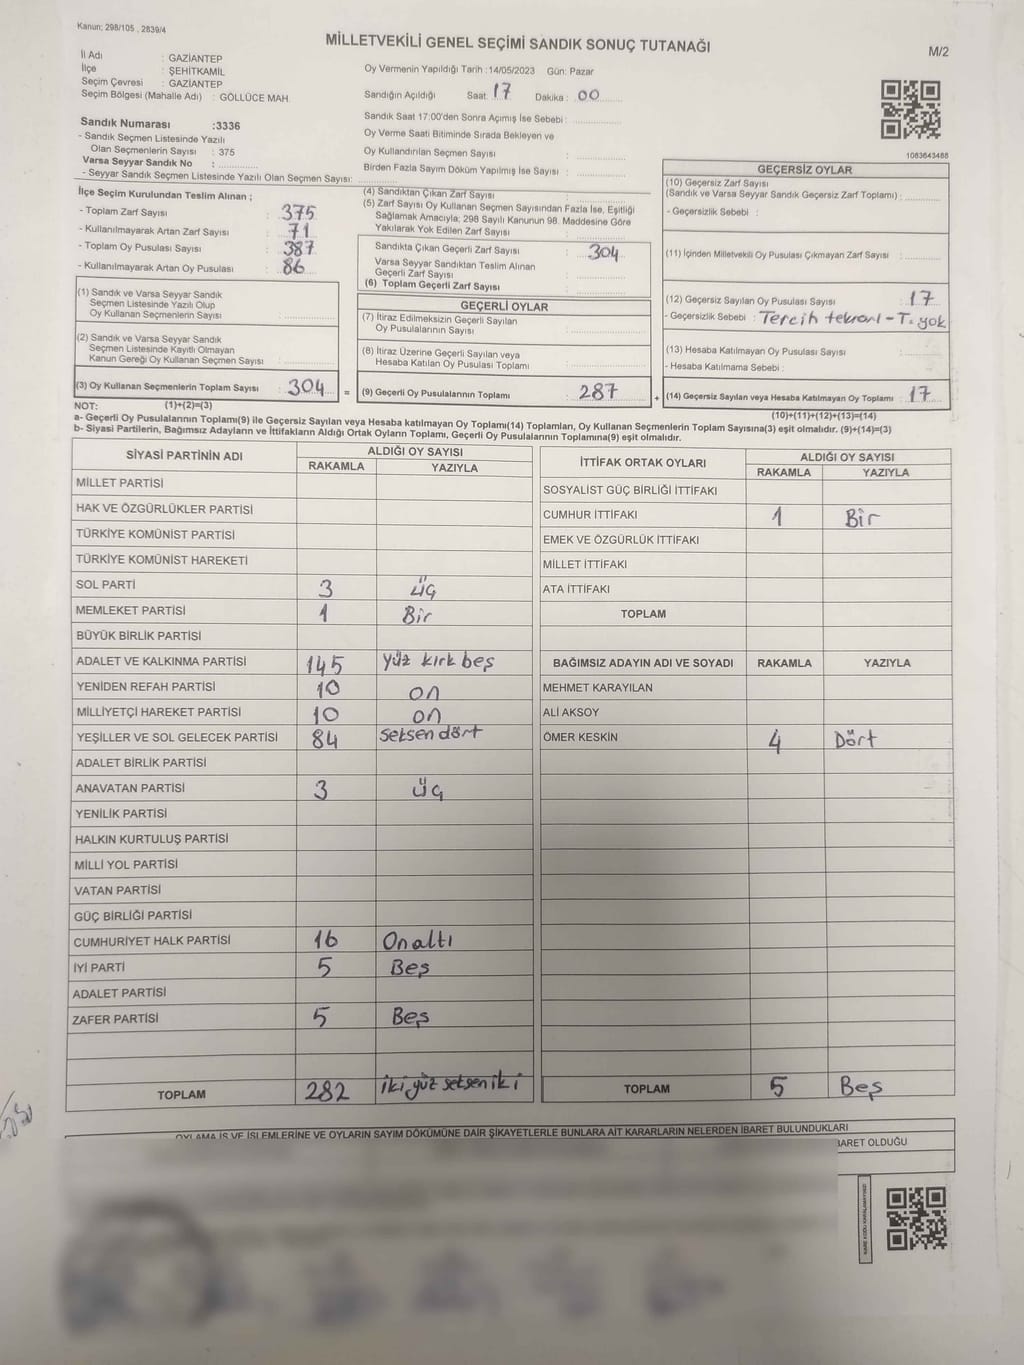 Kanun; 298/105 , 2839/4
MİLLETVEKİLİ GENEL SEÇİMİ SANDIK SONUÇ TUTANAĞI
M/2
İl Adı : GAZİANTEP
İlçe : ŞEHİTKAMİL
Seçim Çevresi : GAZİANTEP
Seçim Bölgesi (Mahalle Adı) : GÖLLÜCE MAH.
Sandık Numarası :3336
- Sandık Seçmen Listesinde Yazılı
Olan Seçmenlerin Sayısı : 375
Varsa Seyyar Sandık No :
- Seyyar Sandık Seçmen Listesinde Yazılı Olan Seçmen Sayısı:
Oy Vermenin Yapıldığı Tarih :14/05/2023 Gün: Pazar
Sandığın Açıldığı Saat: 17 Dakika : 00
Sandık Saat 17:00'den Sonra Açımış İse Sebebi :
Oy Verme Saati Bitiminde Sırada Bekleyen ve
Oy Kullandırılan Seçmen Sayısı :
Birden Fazla Sayım Döküm Yapılmış İse Sayısı :
1083643488
İlçe Seçim Kurulundan Teslim Alınan ;
- Toplam Zarf Sayısı : 375
- Kullanılmayarak Artan Zarf Sayısı : 71
- Toplam Oy Pusulası Sayısı : 387
- Kullanılmayarak Artan Oy Pusulası : 86
(1) Sandık ve Varsa Seyyar Sandık
Seçmen Listesinde Yazılı Olup
Oy Kullanan Seçmenlerin Sayısı :
(2) Sandık ve Varsa Seyyar Sandık
Seçmen Listesinde Kayıtlı Olmayan
Kanun Gereği Oy Kullanan Seçmen Sayısı :
(3) Oy Kullanan Seçmenlerin Toplam Sayısı : 304
=
(4) Sandıktan Çıkan Zarf Sayısı :
(5) Zarf Sayısı Oy Kullanan Seçmen Sayısından Fazla İse, Eşitliği
Sağlamak Amacıyla; 298 Sayılı Kanunun 98. Maddesine Göre
Yakılarak Yok Edilen Zarf Sayısı :
Sandıkta Çıkan Geçerli Zarf Sayısı : 304
Varsa Seyyar Sandıktan Teslim Alınan
Geçerli Zarf Sayısı :
(6) Toplam Geçerli Zarf Sayısı :
GEÇERLİ OYLAR
(7) İtiraz Edilmeksizin Geçerli Sayılan
Oy Pusulalarının Sayısı :
(8) İtiraz Üzerine Geçerli Sayılan veya
Hesaba Katılan Oy Pusulaları Toplamı :
(9) Geçerli Oy Pusulalarının Toplamı : 287
+
GEÇERSİZ OYLAR
(10) Geçersiz Zarf Sayısı
(Sandık ve Varsa Seyyar Sandık Geçersiz Zarf Toplamı) :
- Geçersizlik Sebebi :
(11) İçinden Milletvekili Oy Pusulası Çıkmayan Zarf Sayısı :
(12) Geçersiz Sayılan Oy Pusulası Sayısı : 17
- Geçersizlik Sebebi : Tercih tekrarı - T. yok
(13) Hesaba Katılmayan Oy Pusulası Sayısı :
- Hesaba Katılmama Sebebi :
(14) Geçersiz Sayılan veya Hesaba Katılmayan Oy Toplamı : 17
NOT: (1)+(2)=(3)
(10)+(11)+(12)+(13)=(14)
a- Geçerli Oy Pusulalarının Toplamı(9) ile Geçersiz Sayılan veya Hesaba katılmayan Oy Toplamı(14) Toplamları, Oy Kullanan Seçmenlerin Toplam Sayısına(3) eşit olmalıdır. (9)+(14)=(3)
b- Siyasi Partilerin, Bağımsız Adayların ve İttifakların Aldığı Ortak Oyların Toplamı, Geçerli Oy Pusulalarının Toplamına(9) eşit olmalıdır.
SİYASİ PARTİNİN ADI ALDIĞI OY SAYISI
RAKAMLA YAZIYLA
MİLLET PARTİSİ
HAK VE ÖZGÜRLÜKLER PARTİSİ
TÜRKİYE KOMÜNİST PARTİSİ
TÜRKİYE KOMÜNİST HAREKETİ
SOL PARTİ 3 üç
MEMLEKET PARTİSİ 1 Bir
BÜYÜK BİRLİK PARTİSİ
ADALET VE KALKINMA PARTİSİ 145 yüz kırk beş
YENİDEN REFAH PARTİSİ 10 on
MİLLİYETÇİ HAREKET PARTİSİ 10 on
YEŞİLLER VE SOL GELECEK PARTİSİ 84 seksen dört
ADALET BİRLİK PARTİSİ
ANAVATAN PARTİSİ 3 üç
YENİLİK PARTİSİ
HALKIN KURTULUŞ PARTİSİ
MİLLİ YOL PARTİSİ
VATAN PARTİSİ
GÜÇ BİRLİĞİ PARTİSİ
CUMHURİYET HALK PARTİSİ 16 Onaltı
İYİ PARTİ 5 Beş
ADALET PARTİSİ
ZAFER PARTİSİ 5 Beş
TOPLAM 282 iki yüz seksen iki
İTTİFAK ORTAK OYLARI ALDIĞI OY SAYISI
RAKAMLA YAZIYLA
SOSYALİST GÜÇ BİRLİĞİ İTTİFAKI
CUMHUR İTTİFAKI 1 Bir
EMEK VE ÖZGÜRLÜK İTTİFAKI
MİLLET İTTİFAKI
ATA İTTİFAKI
TOPLAM
BAĞIMSIZ ADAYIN ADI VE SOYADI RAKAMLA YAZIYLA
MEHMET KARAYILAN
ALİ AKSOY
ÖMER KESKİN 4 Dört
TOPLAM 5 Beş
OYLAMA İŞ VE İŞLEMLERİNE VE OYLARIN SAYIM DÖKÜMÜNE DAİR ŞİKAYETLERLE BUNLARA AİT KARARLARIN NELERDEN İBARET BULUNDUKLARI
İBARET OLDUĞU
KARE KODU KARALAMAYINIZ!